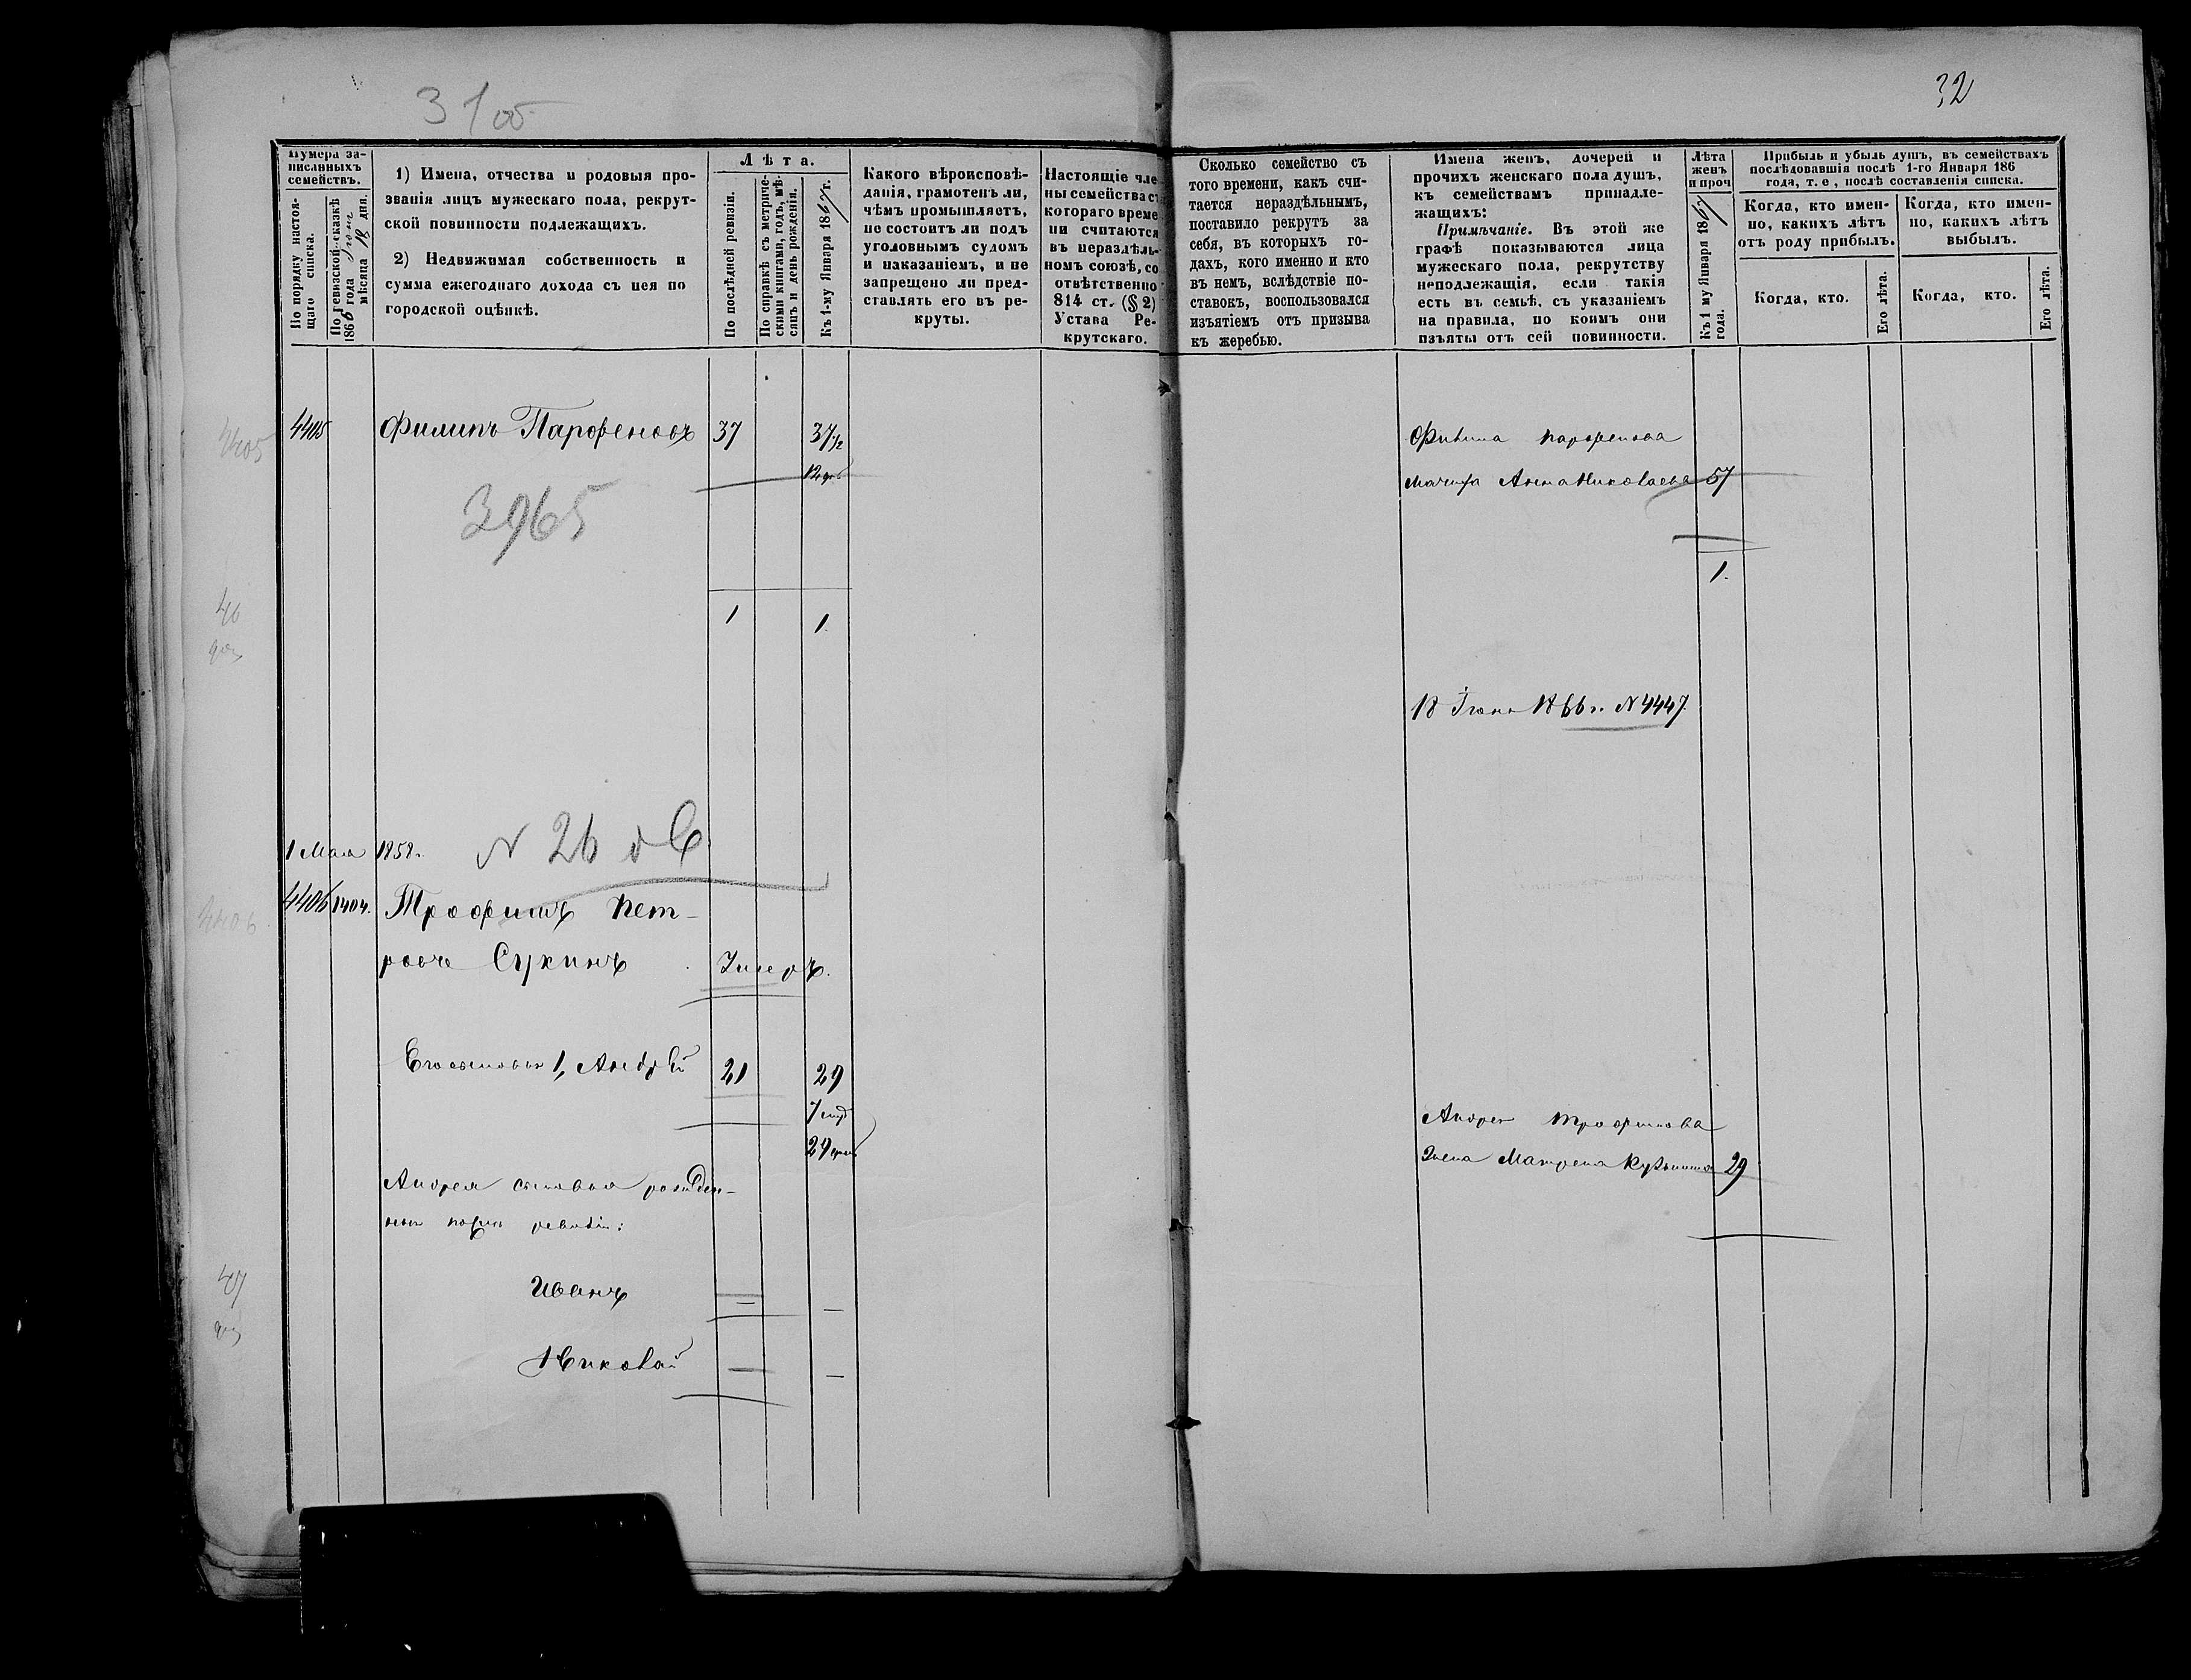 31 об
32
Нумера за-
писанныхъ
семействъ.
По порядку настоя-
щаго списка.
По ревизской сказкѣ
1866 года Іюня
мѣсяца 18 дня.
1) Имена, отчества и родовыя про-
званія лицъ мужескаго пола, рекрут-
ской повинности подлежащихъ.
2) Недвижимая собственность и
сумма ежегоднаго дохода съ нея по
городской оцѣнкѣ.
Лѣта.
По послѣдней ревизіи.
По справкѣ съ метриче-
скими книгами, годъ, мѣ-
сяцъ и день рожденія.
Къ 1-му Января 1867 г.
Какого вѣроисповѣ-
данія, грамотенъ ли,
чѣмъ промышляетъ,
не состоитъ ли подъ
уголовнымъ судомъ
и наказаніемъ, и не
запрещено ли пред-
ставлять его въ ре-
круты.
Настоящіе чле-
ны семейства съ
котораго време-
ни считаются
въ нераздѣль-
номъ союзѣ, со-
отвѣтственно
814 ст. (§ 2)
Устава Ре-
крутскаго.
Сколько семейство съ
того времени, какъ счи-
тается нераздѣльнымъ,
поставило рекрутъ за
себя, въ которыхъ го-
дахъ, кого именно и кто
въ немъ, вслѣдствіе по-
ставокъ, воспользовался
изъятіемъ отъ призыва
къ жеребью.
Имена женъ, дочерей и
прочихъ женскаго пола душъ,
къ семействамъ принадле-
жащихъ:
Примѣчаніе. Въ этой же
графѣ показываются лица
мужескаго пола, рекрутству
неподлежащія, если такія
есть въ семьѣ, съ указаніемъ
на правила, по коимъ они
изъяты отъ сей повинности.
Лѣта
женъ
и проч
Къ 1 му Января 1867
года.
Прибыль и убыль душъ, въ семействахъ
послѣдовавшія послѣ 1-го Января 186
года, т. е, послѣ составленія списка.
Когда, кто имен-
но, какихъ лѣтъ
отъ роду прибылъ.
Когда, кто имен-
но, какихъ лѣтъ
выбылъ.
Когда, кто.
Его лѣта.
Когда, кто.
Его лѣта.
4405
4405 Филипъ Парфеновъ 37 37 1/2
3965
Филипа Парфенова
мачиха Анна Николаева 57
1.
1 1.
46
18 Іюня 1866 г. N 4447.
N 26
1 Мая 1858 г.
4406
4406 1404. Трофимъ Пет-
ровъ Сукинъ Умеръ.
Его сыновья 1, Андрей 21 29
Андрея Трофимова
жена Матрена Кузьмина 29
Андрея сыновья рожден-
ныя послѣ ревизіи:
47
Иванъ — —
Николай — —